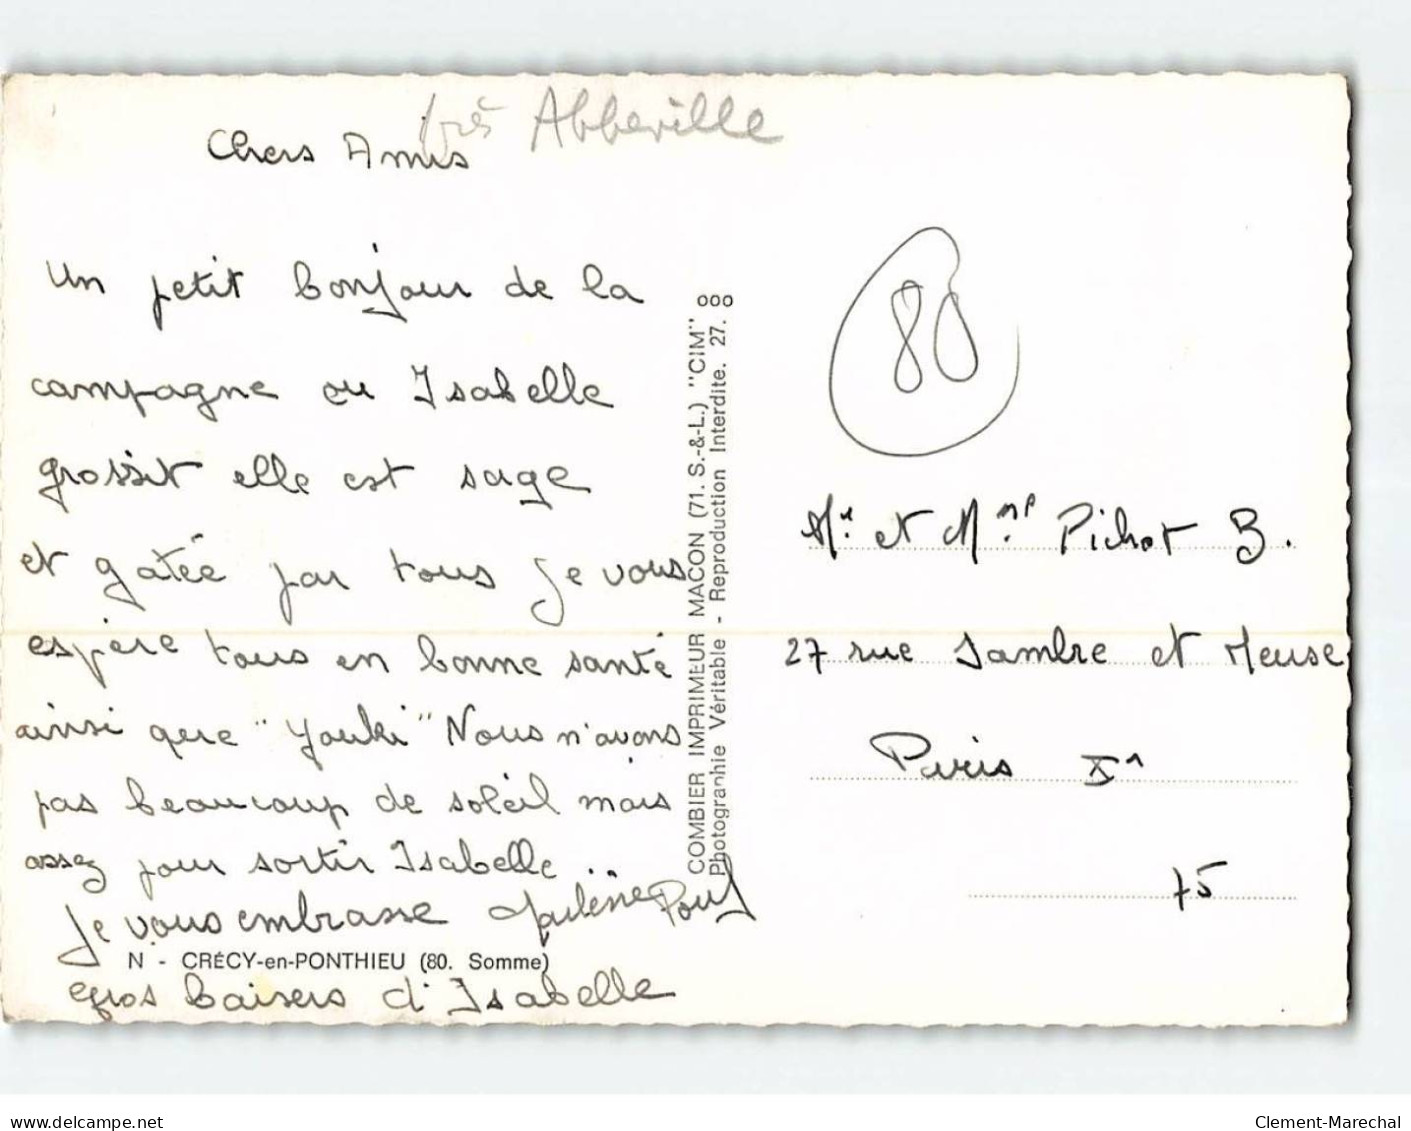 près Abbeville
Chers Amis
Un petit bonjour de la
campagne ou Isabelle
grossit elle est sage
et gatée par tous Je vous
espère tous en bonne santé
ainsi que "Youki" Nous n'avons
pas beaucoup de soleil mais
assez pour sortir Isabelle
Je vous embrasse Marlène
N - CRÉCY-en-PONTHIEU (80. Somme)
gros baisers d'Isabelle
COMBIER IMPRIMEUR MACON (71. S.-&-L.) "CIM"
Photographie Véritable - Reproduction Interdite. 27. 000
80
Mr. et Mme. Pichot B.
27 rue Sambre et Meuse
Paris X
75
www.delcampe.net
Clement-Marechal